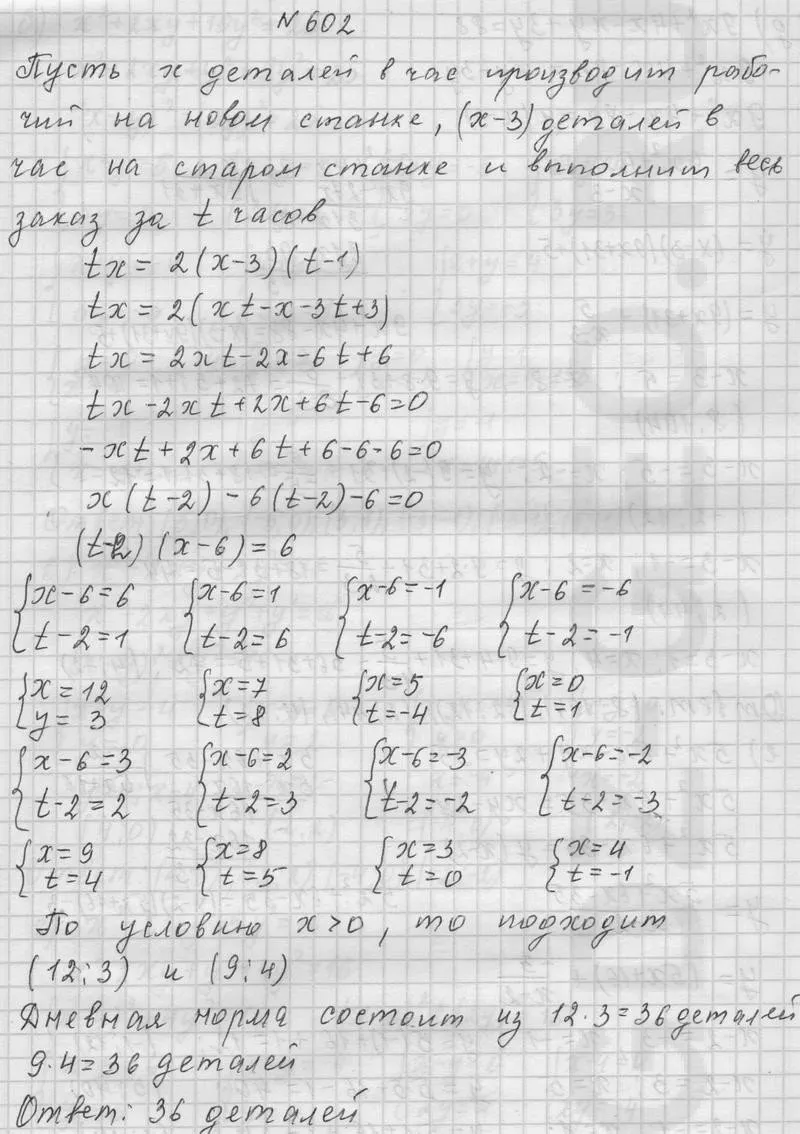 № 602
Пусть x деталей в час производит рабо-
чий на новом станке, (x-3) деталей в
час на старом станке и выполнит весь
заказ за t часов
tx = 2(x-3)(t-1)
tx = 2(xt-x-3t+3)
tx = 2xt-2x-6t+6
tx-2xt+2x+6t-6=0
-xt+2x+6t+6-6-6=0
x(t-2)-6(t-2)-6=0
(t-2)(x-6)=6
{x-6=6 {x-6=1 {x-6=-1 {x-6=-6
{t-2=1 {t-2=6 {t-2=-6 {t-2=-1
{x=12 {x=7 {x=5 {x=0
{y=3 {t=8 {t=-4 {t=1
{x-6=3 {x-6=2 {x-6=-3 {x-6=-2
{t-2=2 {t-2=3 {t-2=-2 {t-2=-3
{x=9 {x=8 {x=3 {x=4
{t=4 {t=5 {t=0 {t=-1
По условию x>0, то подходит
(12;3) и (9;4)
Дневная норма состоит из 12·3=36 деталей
9·4=36 деталей
Ответ: 36 деталей